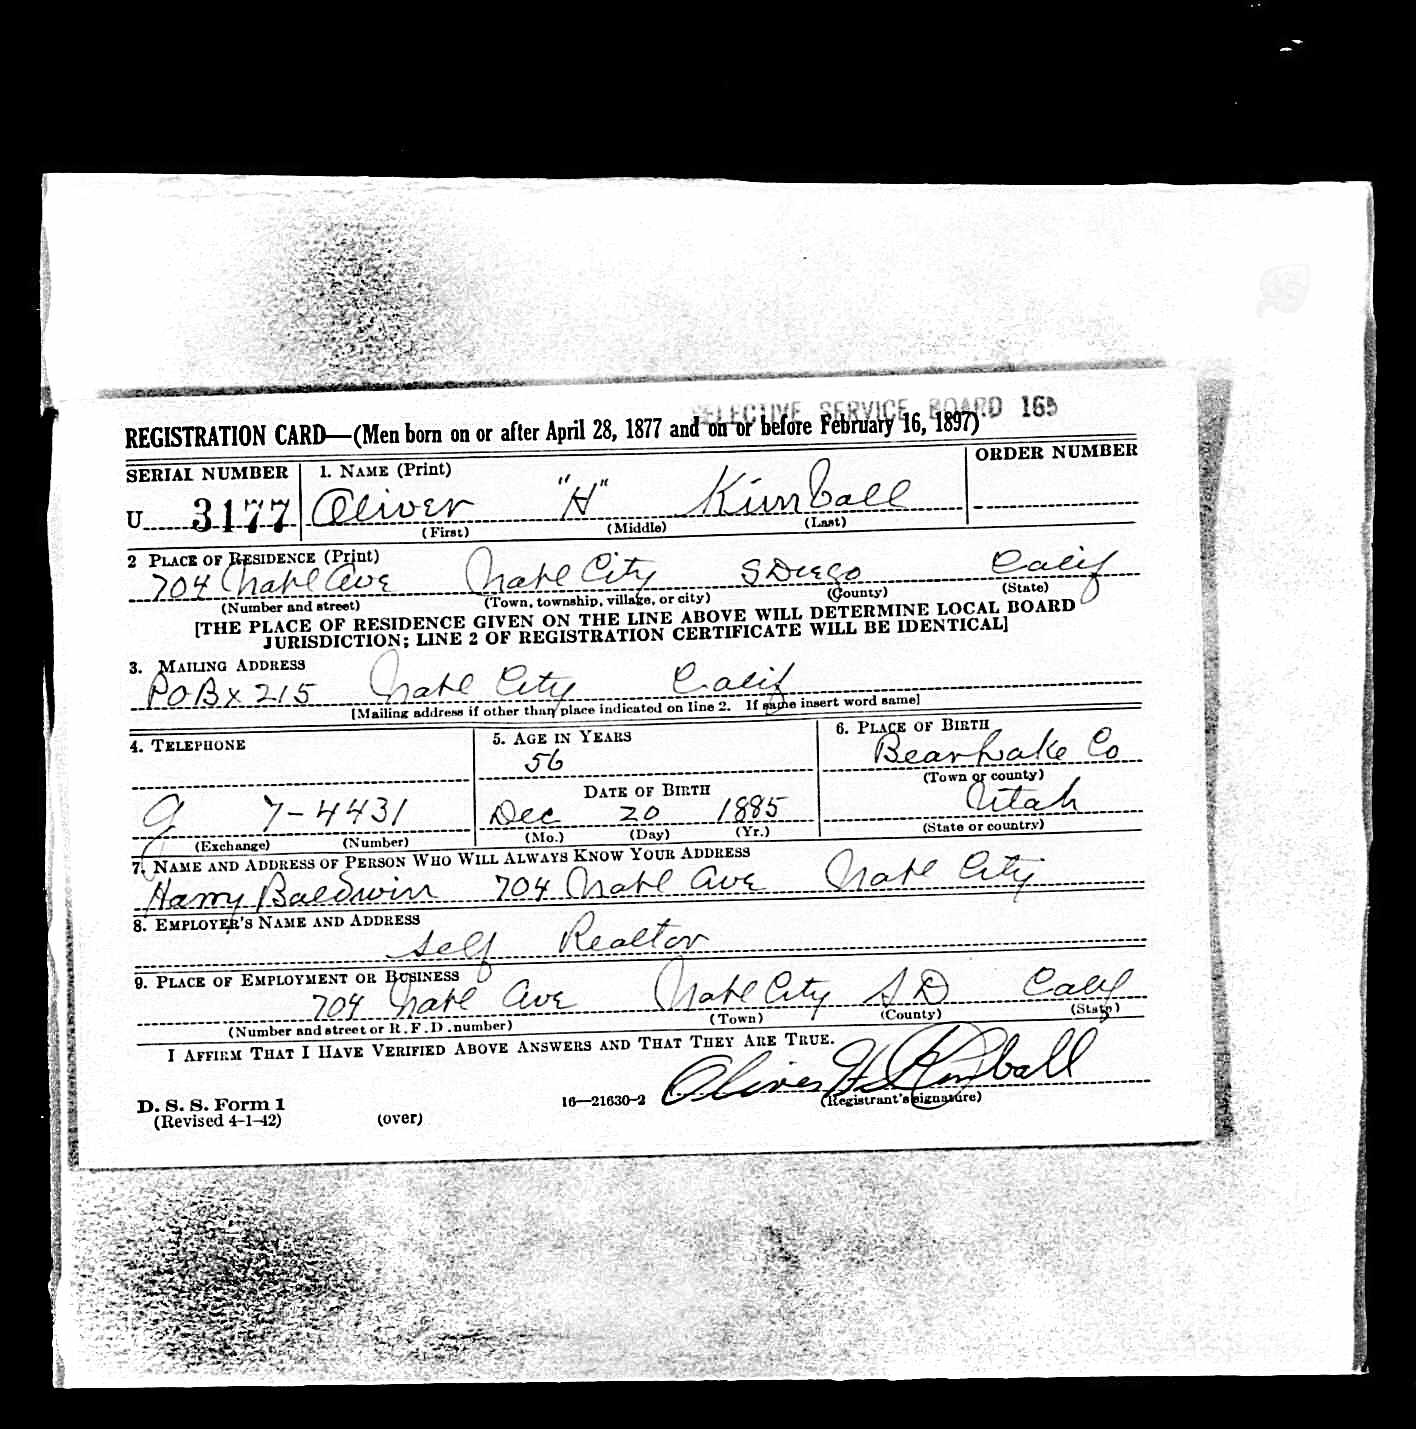 SELECTIVE SERVICE BOARD 165
REGISTRATION CARD—(Men born on or after April 28, 1877 and on or before February 16, 1897)
SERIAL NUMBER 1. NAME (Print) ORDER NUMBER
U 3177 Oliver "H" Kimball
(First) (Middle) (Last)
2 PLACE OF RESIDENCE (Print)
704 Natl Ave Natl City S Diego Calif
(Number and street) (Town, township, village, or city) (County) (State)
[THE PLACE OF RESIDENCE GIVEN ON THE LINE ABOVE WILL DETERMINE LOCAL BOARD
JURISDICTION; LINE 2 OF REGISTRATION CERTIFICATE WILL BE IDENTICAL]
3. MAILING ADDRESS
PO Bx 215 Natl City Calif
[Mailing address if other than place indicated on line 2. If same insert word same]
4. TELEPHONE 5. AGE IN YEARS 6. PLACE OF BIRTH
56 Bear Lake Co
(Town or county)
DATE OF BIRTH
7-4431 Dec 20 1885 Utah
(Exchange) (Number) (Mo.) (Day) (Yr.) (State or country)
7. NAME AND ADDRESS OF PERSON WHO WILL ALWAYS KNOW YOUR ADDRESS
Harry Baldwin 704 Natl Ave Natl City
8. EMPLOYER'S NAME AND ADDRESS
Self Realtor
9. PLACE OF EMPLOYMENT OR BUSINESS
704 Natl Ave Natl City S D Calif
(Number and street or R. F. D. number) (Town) (County) (State)
I AFFIRM THAT I HAVE VERIFIED ABOVE ANSWERS AND THAT THEY ARE TRUE.
Oliver H Kimball
D. S. S. Form 1 16—21630-2 (Registrant's signature)
(Revised 4-1-42) (over)